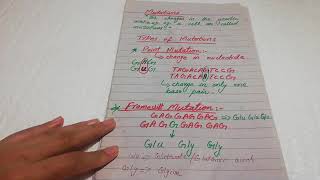 Mutations
The changes in the genetic
make up of a cell are called
mutations.
Types of Mutations
* Point Mutation:-
GAG → change in nucleotide
GUG TAGACAGTCCG
TAGACA TCCG
→ change in only one
base pair.
* Frameshift Mutation:-
GAG GAG GAG GAG ⇒ Glu Glu Glu
GAG GAG GAG
↓
Glu Gly Gly
Glu → Glutamic acid
Gly → Glycine